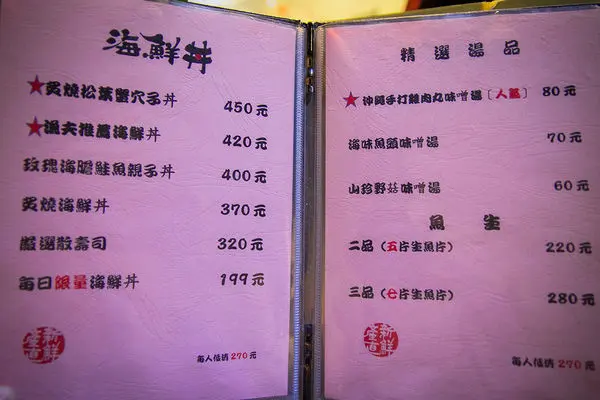 海鮮丼
★炙燒松葉蟹穴子丼 450元
★漁夫推薦海鮮丼 420元
玫瑰海膽鮭魚親子丼 400元
炙燒海鮮丼 370元
嚴選散壽司 320元
每日限量海鮮丼 199元
新鮮
產直
每人低消270元
精選湯品
★沖繩手打雞肉丸味噌湯〔人氣〕 80元
海味魚頭味噌湯 70元
山珍野菇味噌湯 60元
魚生
二品（五片生魚片） 220元
三品（七片生魚片） 280元
新鮮
產直
每人低消270元